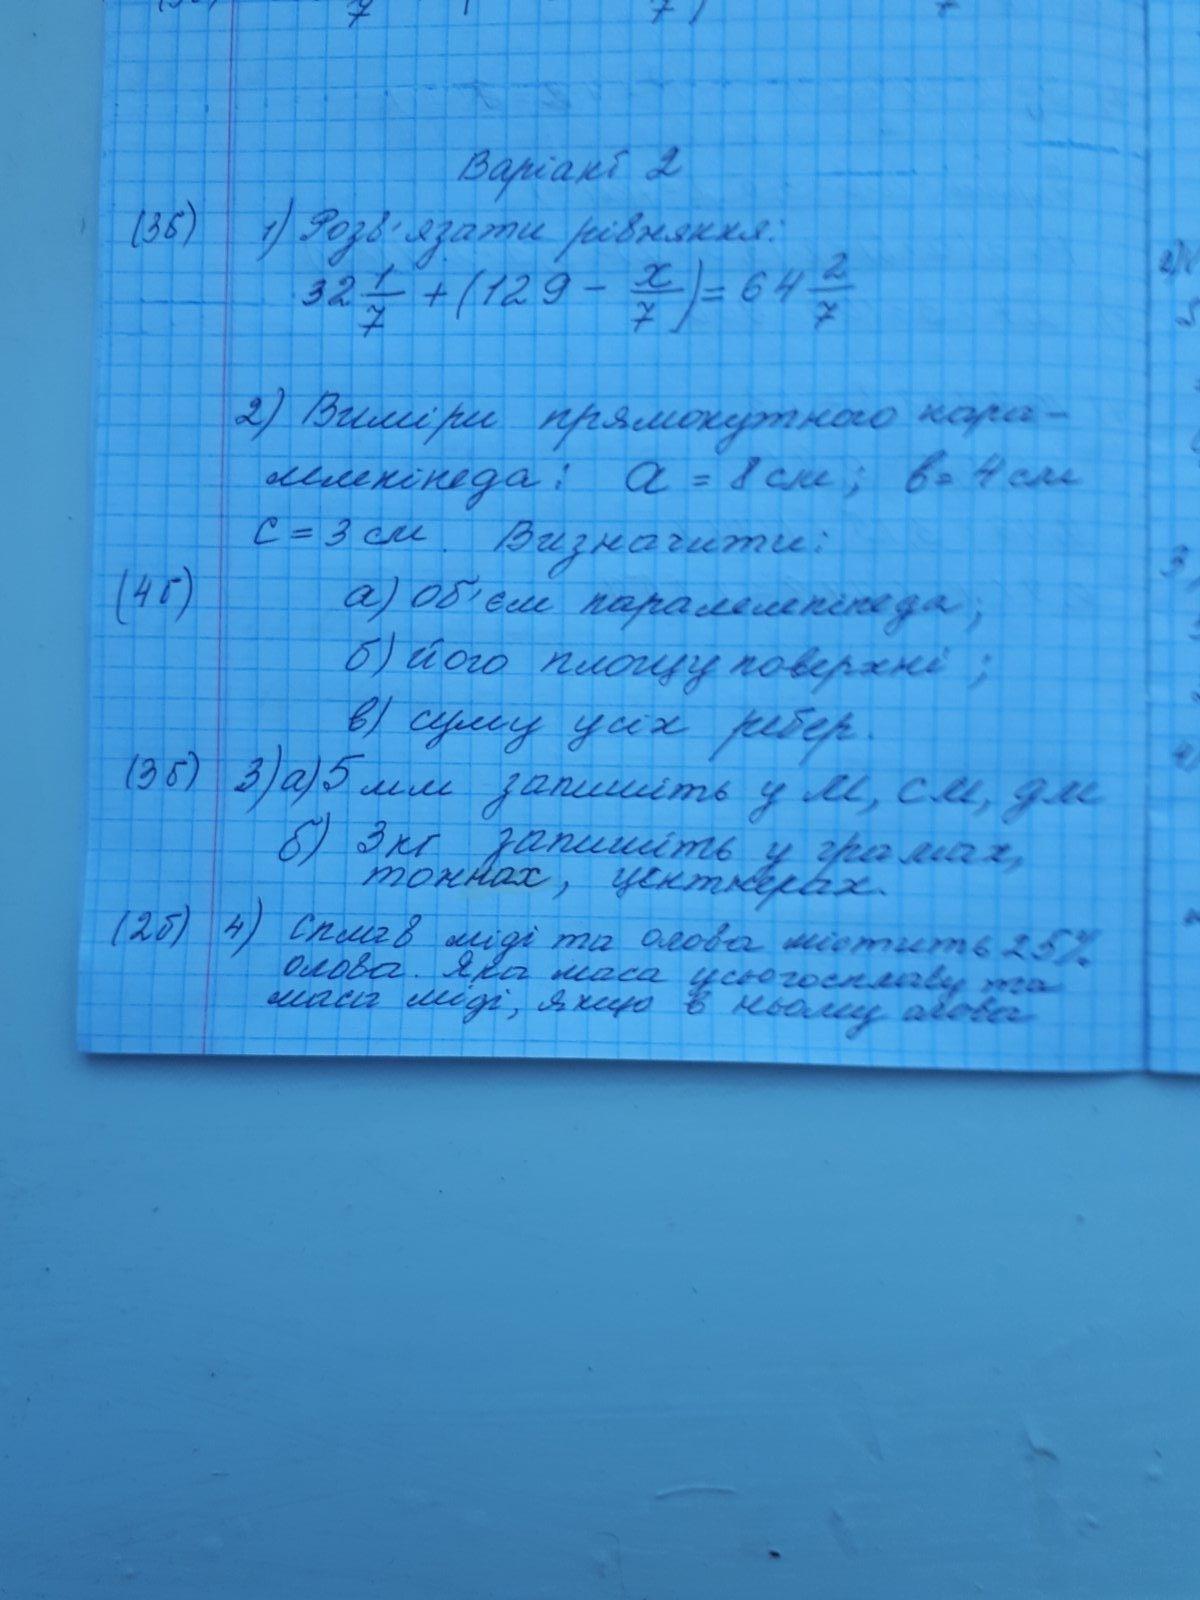 Варіант 2
(3б) 1) Розв'язати рівняння:
32 1/7 + (129 - x/7) = 64 2/7
2) Виміри прямокутного пара-
лелепіпеда: a = 8 см; b = 4 см
c = 3 см. Визначити:
(4б) а) об'єм паралелепіпеда;
б) його площу поверхні;
в) суму усіх ребер.
(3б) 3) а) 5 мм запишіть у м, см, дм
б) 3 кг запишіть у грамах,
тоннах, центнерах.
(2б) 4) Сплав міді та олова містить 25%
олова. Яка маса усього сплаву та
маса міді, якщо в ньому олова